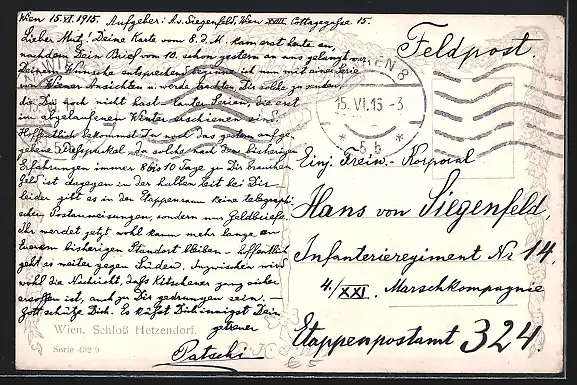 Wien 15. VI. 1915. Aufgeber: A. v. Siegenfeld, Wien XVIII Cottagegasse 15.
Lieber Mutz! Deine Karte vom 8. d. M. kam erst heute an,
nachdem Dein Brief vom 10. schon gestern an uns gelangt war
Deinem Wunsche entsprechend beginne ich nun mit einer Serie
von Wiener Ansichten u. werde trachten Dir solche zu senden,
die Du noch nicht hast. lauter Serien, die erst
im abgelaufenen Winter erschienen sind.
Hoffentlich bekommst Du noch das gestern aufge-
gebene da solche nach den bisherigen
Erfahrungen immer 8 bis 10 Tage zu Dir brauchen.
Geld ist dagegen in der halben Zeit bei Dir
leider gibt es in den Etappenraum keine telegraphi-
schen Postanweisungen, sondern nur Geldbriefe.
Ihr werdet jetzt wohl kaum mehr lange an
Eurem bisherigen Standort bleiben. - hoffentlich
geht es weiter gegen Süden. Inzwischen wird
wohl die Nachricht, daß Kitschener ganz sicher
ersoffen ist, auch zu Dir gedrungen sein. -
Gott schütze Dich. Es küßt Dich innigst Dein
getreuer
Patschi
Wien. Schloß Hetzendorf.
Serie 452/9
Feldpost.
WIEN 8
15. VI. 15 - 3
* 5b *
Einj. Freiw. - Korporal
Hans von Siegenfeld,
Infanterieregiment Nr 14.
4./XXI. Marschkompagnie
Etappenpostamt 324.
€ 5